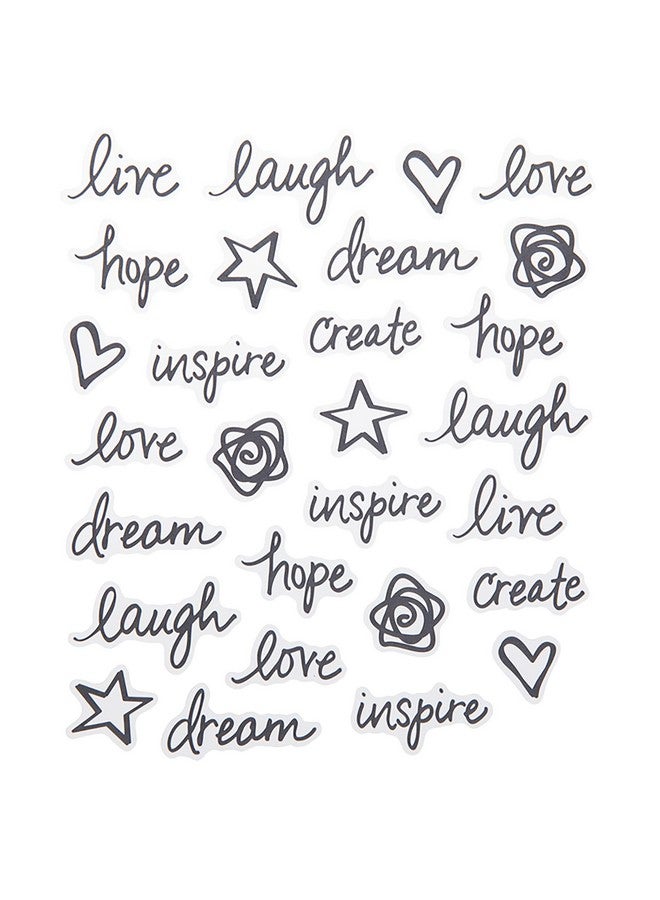 live laugh love
hope dream
inspire Create hope
love laugh
dream inspire live
hope Create
laugh love
dream inspire